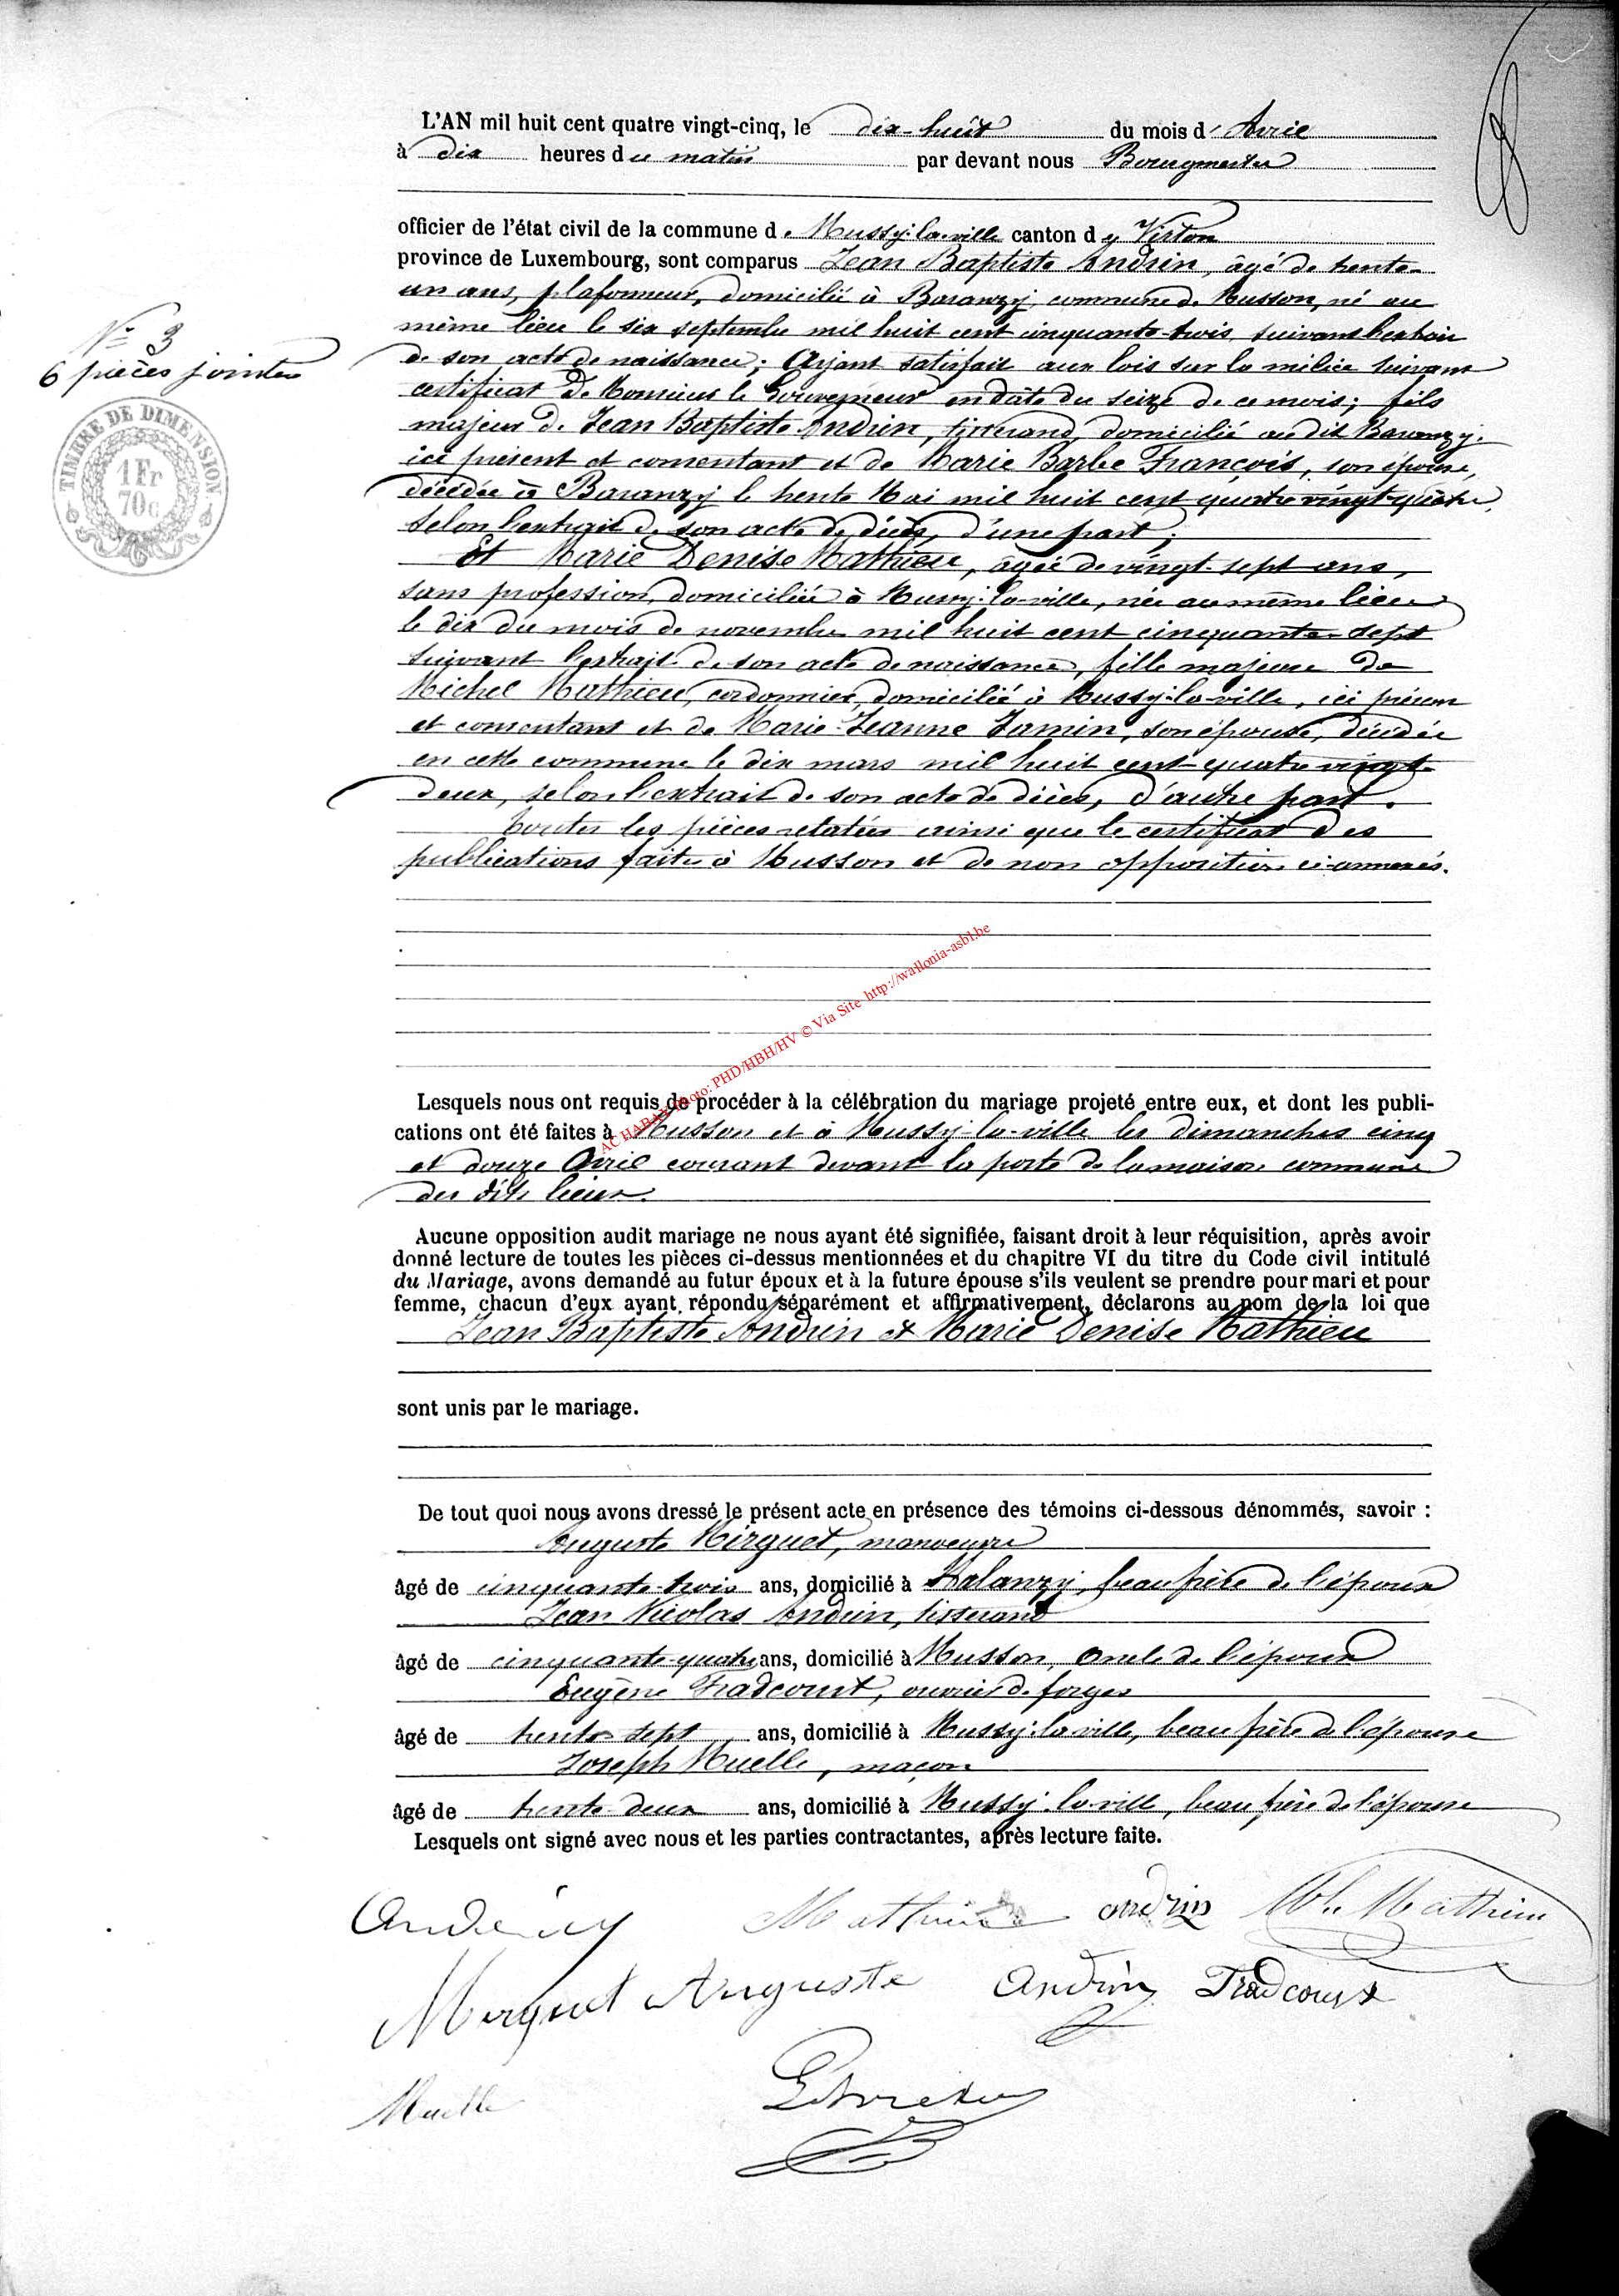 L'AN mil huit cent quatre vingt-cinq, le dix-huit du mois d'Avril
à dix heures du matin par devant nous Bourgmestre
officier de l'état civil de la commune de Mussy-la-ville canton de Virton
province de Luxembourg, sont comparus Jean Baptiste Andrin, âgé de trente-
un ans, plafonneur, domicilié à Baranzy, commune de Musson, né au
même lieu le six septembre mil huit cent cinquante-trois suivant l'extrait
de son acte de naissance; Ayant satisfait aux lois sur la milice suivant
certificat de Monsieur le Gouverneur en date du seize de ce mois; fils
majeur de Jean Baptiste Andrin, tisserand, domicilié au dit Baranzy.
ici présent et consentant et de Marie Barbe François, son épouse,
décédée à Baranzy le trente Mai mil huit cent quatre vingt-quatre,
selon l'extrait de son acte de décès, d'une part;
Et Marie Denise Mathieu, âgée de vingt-sept ans,
sans profession, domiciliée à Mussy-la-ville, née au même lieu
le dix du mois de novembre mil huit cent cinquante-sept
suivant l'extrait de son acte de naissance, fille majeure de
Michel Mathieu, cordonnier, domicilié à Mussy-la-ville, ici présent
et consentant et de Marie-Jeanne Jamin, son épouse, décédée
en cette commune le dix mars mil huit cent quatre vingt-
deux, selon l'extrait de son acte de décès, d'autre part.
Toutes les pièces relatées ainsi que le certificat des
publications faites à Musson et de non opposition ci-annexés.
N° 3
6 pièces jointes
TIMBRE DE DIMENSION.
1 Fr
70c
AC HABAY Photo: PHD/HBH/HV © Via Site http://wallonia-asbl.be
Lesquels nous ont requis de procéder à la célébration du mariage projeté entre eux, et dont les publi-
cations ont été faites à Musson et à Mussy-la-ville les dimanches cinq
et douze Avril courant devant la porte de la maison commune
des dits lieux.
Aucune opposition audit mariage ne nous ayant été signifiée, faisant droit à leur réquisition, après avoir
donné lecture de toutes les pièces ci-dessus mentionnées et du chapitre VI du titre du Code civil intitulé
du Mariage, avons demandé au futur époux et à la future épouse s'ils veulent se prendre pour mari et pour
femme, chacun d'eux ayant répondu séparément et affirmativement, déclarons au nom de la loi que
Jean Baptiste Andrin et Marie Denise Mathieu
sont unis par le mariage.
De tout quoi nous avons dressé le présent acte en présence des témoins ci-dessous dénommés, savoir :
Auguste Mirguet, manoeuvre
âgé de cinquante-trois ans, domicilié à Halanzy, beau frère de l'époux
Jean Nicolas Andrin, tisserand
âgé de cinquante-quatre ans, domicilié à Musson, oncle de l'époux
Eugène Fradcourt, ouvrier de forges
âgé de trente-sept ans, domicilié à Mussy-la-ville, beau frère de l'épouse
Joseph Muelle, maçon
âgé de trente-deux ans, domicilié à Mussy-la-ville, beau frère de l'épouse
Lesquels ont signé avec nous et les parties contractantes, après lecture faite.
Mathieu andrin Mathieu
Mirguet Auguste Andrin Fradcourt
Muelle